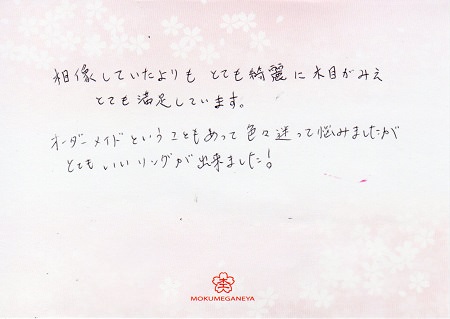 相像していたよりも とても綺麗に木目がみえ
とても満足しています。
オーダーメイドということもあって色々迷って悩みましたが
とてもいいリングが出来ました!
MOKUMEGANEYA